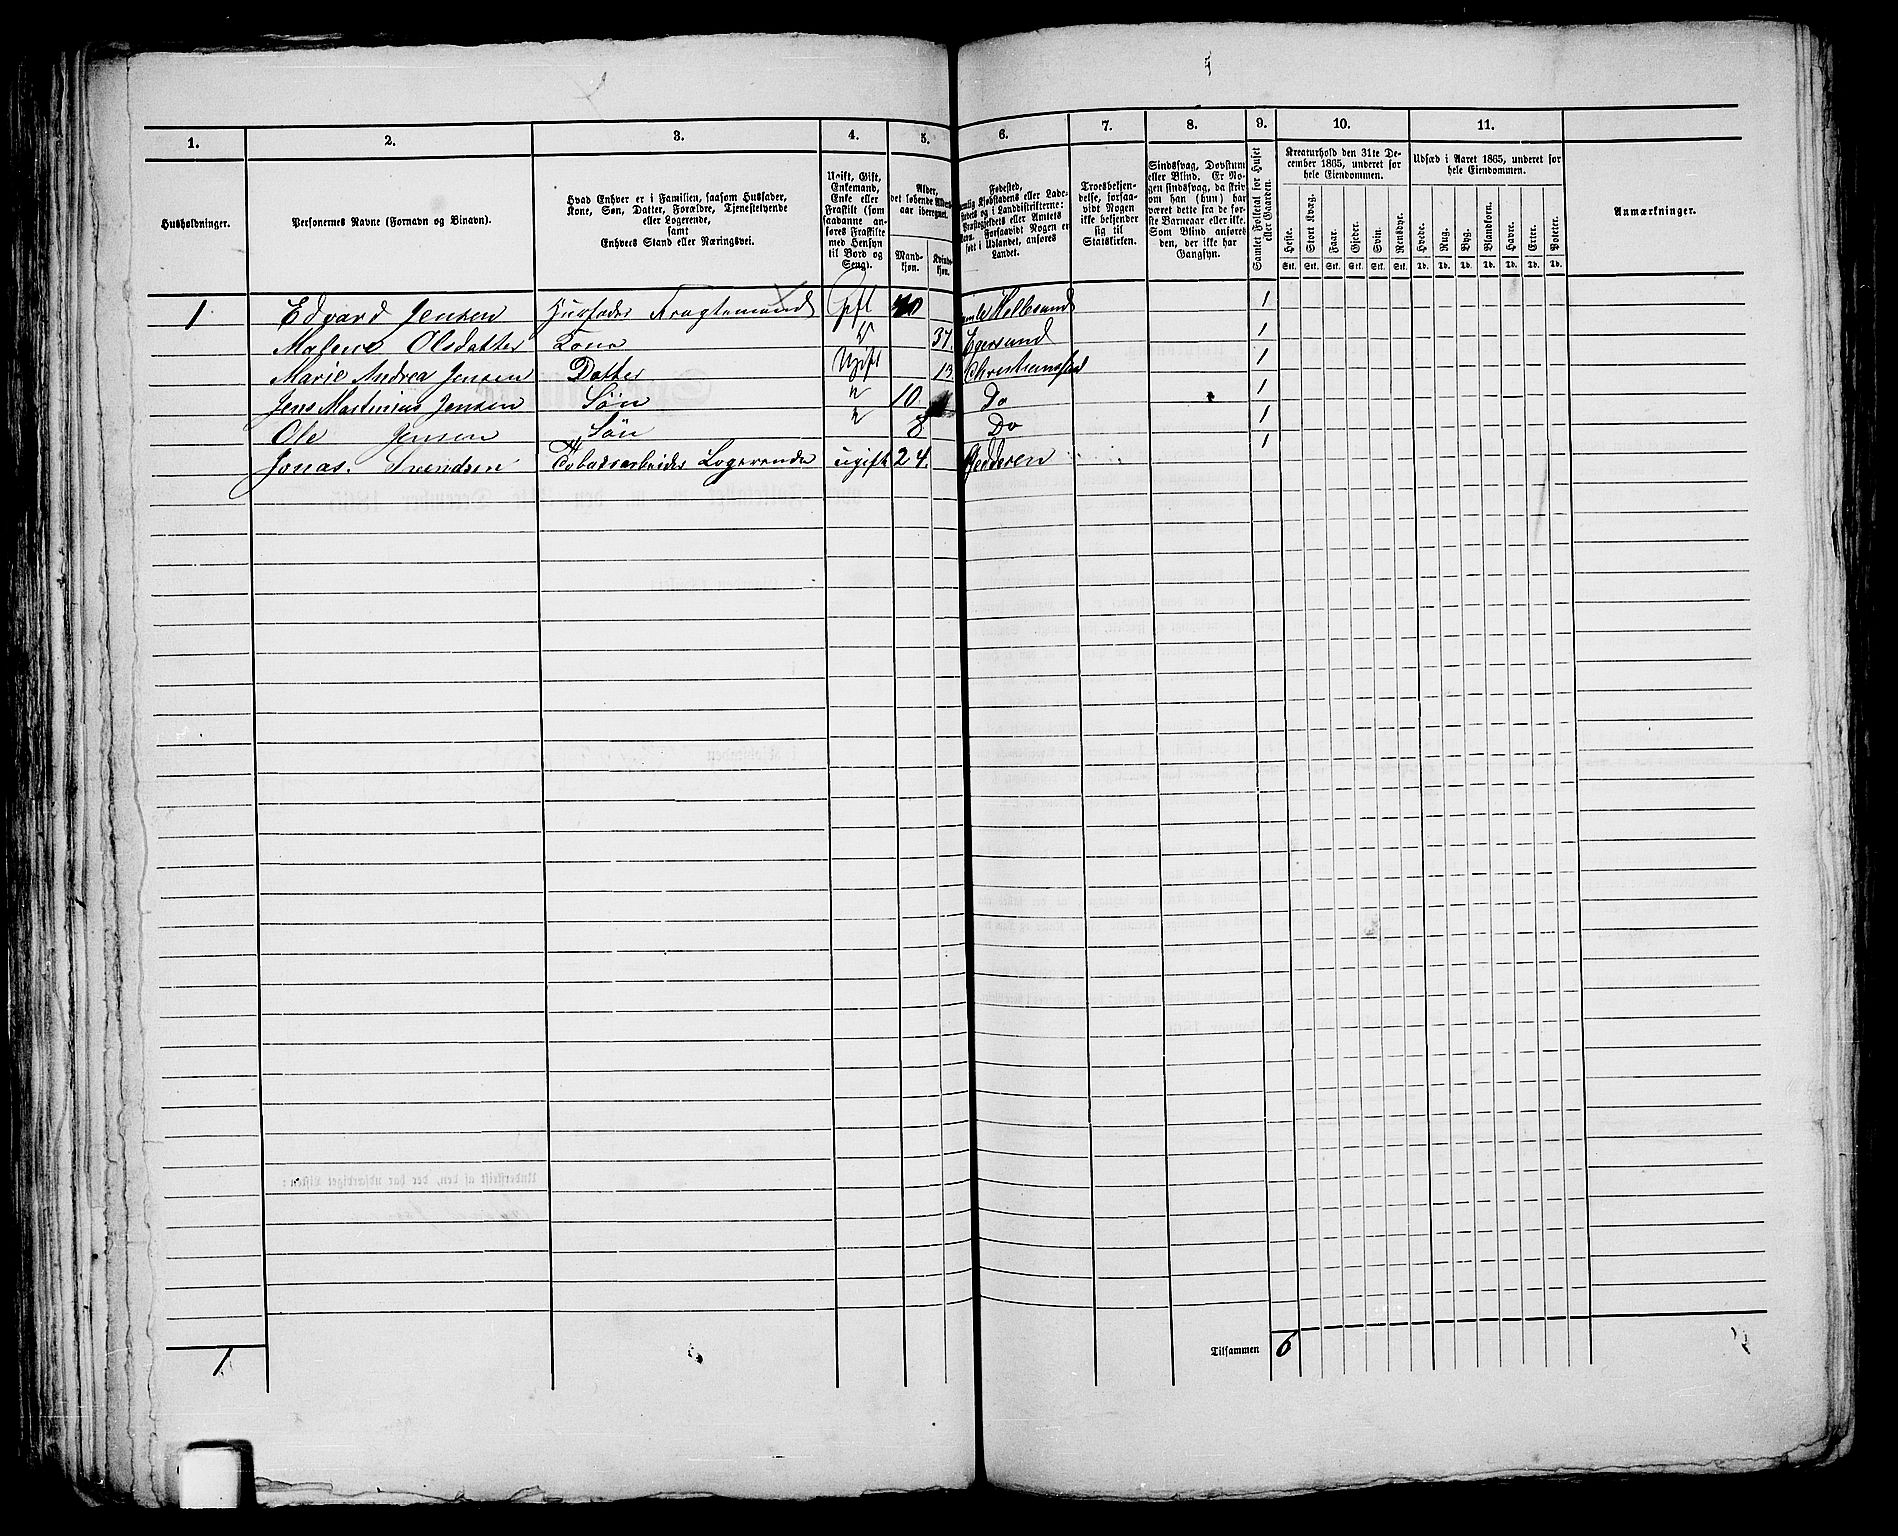 1. 2. 3. 4. 5. 6. 7. 8. 9. 10. 11.
Husholdninger.
Personernes Navne (Fornavn og Binavn).
Hvad Enhver er i Familien, saasom Husfader,
Kone, Søn, Datter, Forældre, Tjenestetyende
eller Logerende,
samt
Enhvers Stand eller Næringsvei.
Ugift, Gift,
Enkemand,
Enke eller
Fraskilt (som
saadanne an-
føres Fraskilte
med Hensyn
til Bord og
Seng).
Alder,
det løbende Alders-
aar iberegnet.
Mand-
kjøn.
Kvinde-
kjøn.
Fødested,
Kjøbstadens eller Lade-
stedets og i Landdistrikterne:
Præstegjeldets eller Amtets
Navn. Forsaavidt Nogen er
født i Udlandet, anføres
Landet.
Troesbekjen-
delse, forsaa-
vidt Nogen
ikke bekjender
sig til
Statskirken.
Sindssvag, Døvstum
eller Blind. Er No-
gen sindssvag, da skriv
om han (hun) har
været dette fra de før-
ste Barneaar eller ikke.
Som Blind anføres
den, der ikke har
Gangsyn.
Samlet Folketal for Huset
eller Gaarden.
Kreaturhold den 31te De-
cember 1865, underet for
hele Eiendommen.
Heste. Stort Kvæg. Faar. Gjeder. Svin. Rensdyr.
Stk. Stk. Stk. Stk. Stk. Stk.
Udsæd i Aaret 1865, underet for
hele Eiendommen.
Hvede. Rug. Byg. Blandkorn. Havre. Erter. Poteter.
Td. Td. Td. Td. Td. Td. Td.
Anmærkninger.
1 Edvard Jensen Husfader Fragtemand gift 40 Hellesund 1
Malene Olsdatter Kone 37. Egersund 1
Marie Andrea Jensen Datter Ugift 13. Christianssted 1
Jens Martinius Jensen Søn 10 Do 1
Ole Jensen Søn 8 Do 1
Jonas Svendsen Tobaksarbeider Logerende ugift 24. Jedderen 1
1 Tilsammen 6